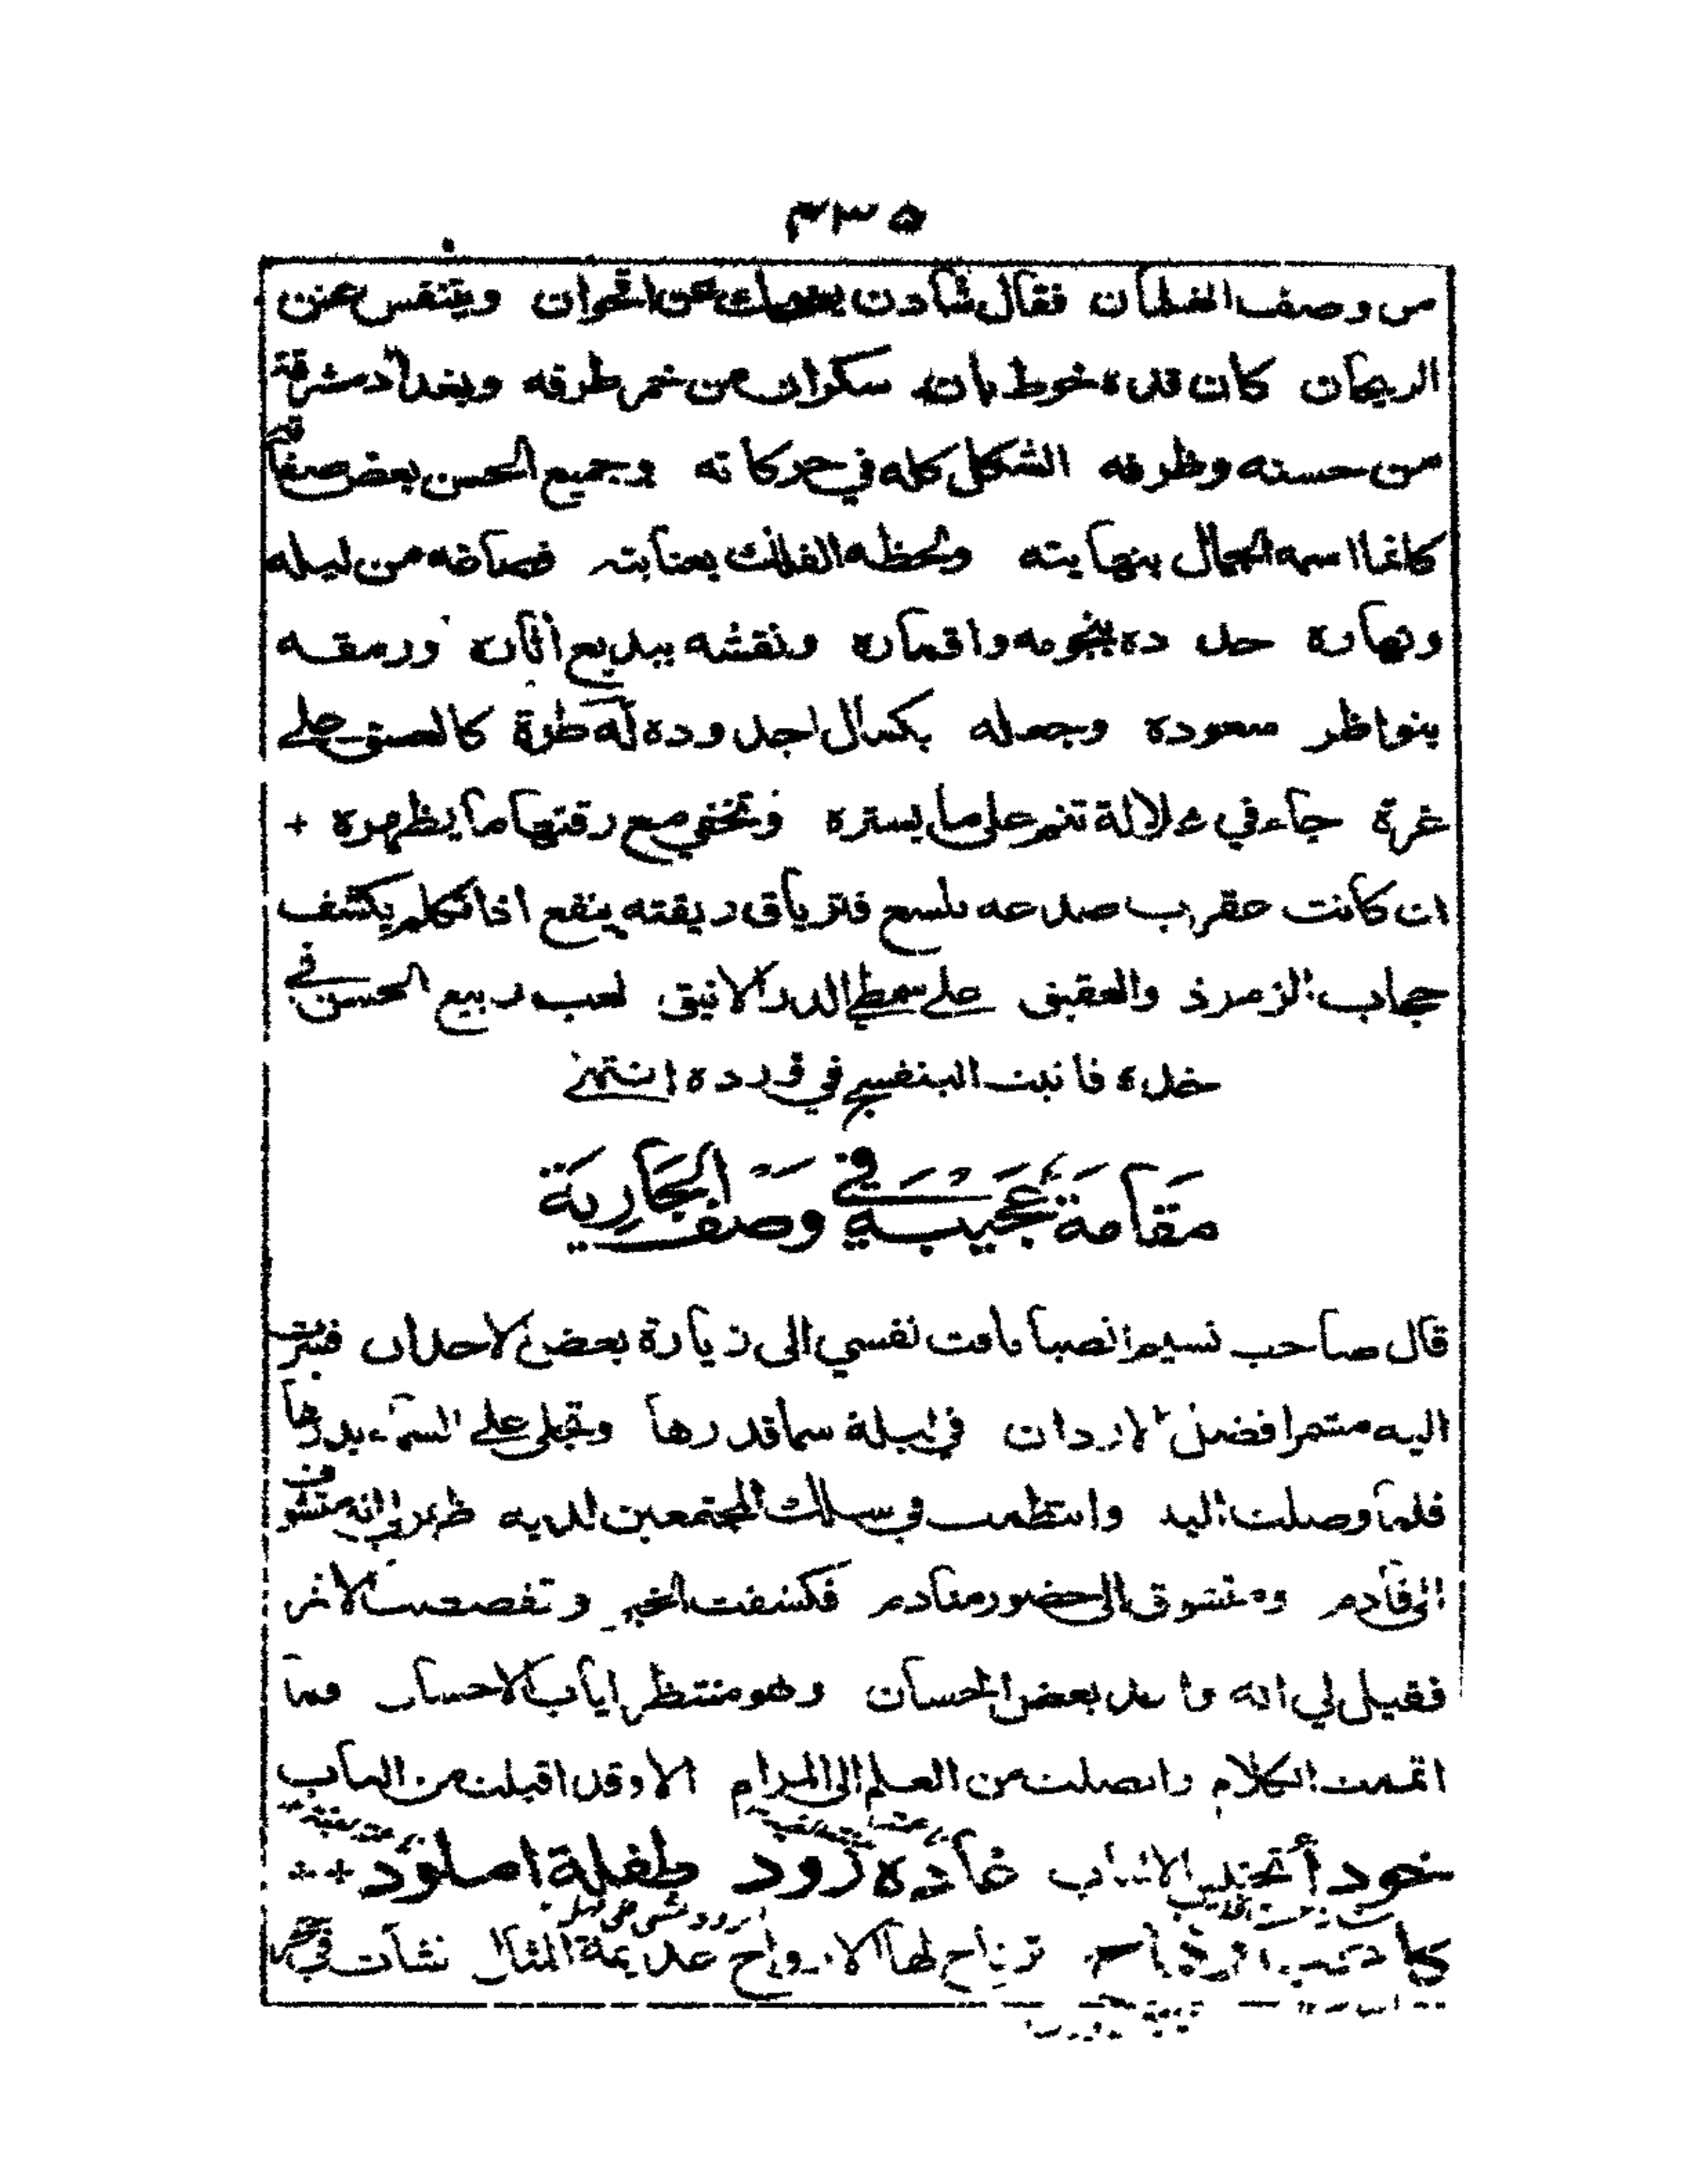 ٣٣٥
من وصف الغلمان فقال شادن يضحك عن اقحوان ويتنفس عن
الريحان كان قده خوط بان سكران من خمر طرفه وبغداد مشرقة
من حسنه وظرفه الشكل كله في حركاته وجميع الحسن بعض صفاته
كانما اسمه الجمال بنهايته ولحظه الفلك بعنايته فصاغه من ليله
ونهاره حلاه بنجومه واقماره ونقشه ببديع اثاره ورمقه
بنواظر سعوده وجعله بكمال اجدوده له طرة كالغسق على
غرة جاء في غلالة تنم على ما يستره وتخفي مع رقتها ما يظهره +
ان كانت عقرب صدغه تلسع فترياق ريقته ينفع اذا تكلم يكشف
حجاب الزمرذ والعقيق على سمط الدر الانيق لعب ربيع الحسن في
خده فانبت البنفسج في ورده انتهى
مَقَامَةٌ عَجِيبَةٌ في وَصْفِ الجَارِيَة
قال صاحب نسيم الصبا تاقت نفسي الى زيارة بعض الاخدان فسرت
اليه مشمرا فضل الاردان في ليلة سما قدرها وتجلى على السماء بدرها
فلما وصلت اليه وانتظمت في سلك المجتمعين لديه ظهر لي انه متشوف
الى قادم ومتشوق الى حضور منادم فكشفت الخبر وتفحصت الاثر
فقيل لي انه واعد بعض الحسان وهو منتظر اياب الاحسان فما
اتممت الكلام واتصلت من العلم الى المرام الا وقد اقبلت من الباب
خود الالباب غادة رود طفلة املود ++
ترتاح لها الارواح عديمة المثال نشأت في حجر